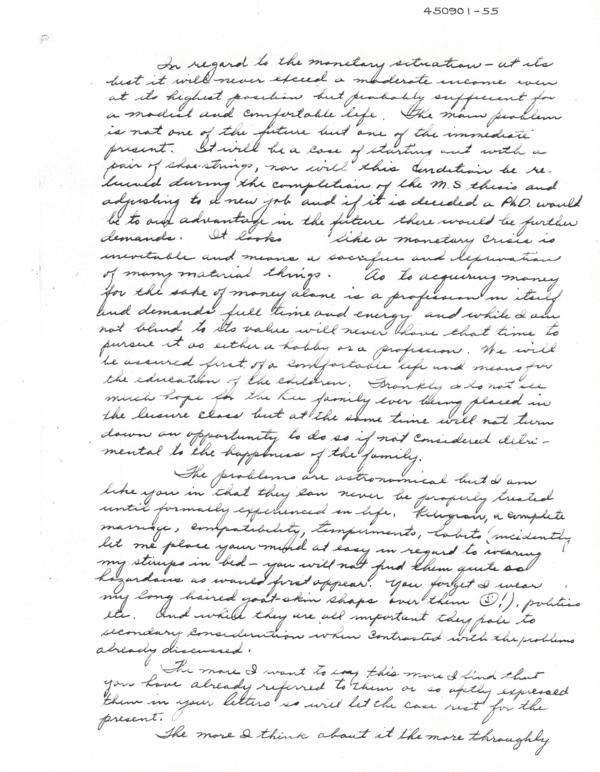 450901-55
In regard to the monetary situation - at its
best it will never exceed a moderate income even
at its highest position but probably sufficient for
a modest and comfortable life. The main problem
is not one of the future but one of the immediate
present. It will be a case of starting out with a
pair of shoe-strings, nor will this condition be re-
lieved during the completion of the M.S thesis and
adjusting to a new job and if it is decided a PhD. would
be to our advantage in the future there would be further
demands. It looks like a monetary crisis is
inevitable and means a sacrifice and deprivation
of many material things. As to acquiring money
for the sake of money alone is a profession in itself
and demands full time and energy and while I am
not blind to its value will never have that time to
pursue it as either a hobby or a profession. We will
be assured first of a comfortable life and means for
the education of the children. Frankly I do not see
much hope for the family ever being placed in
the leisure class but at the same time will not turn
down an opportunity to do so if not considered detri-
mental to the happiness of the family.
The problems are astronomical but I am
like you in that they can never be properly treated
until formally experienced in life. Religion, a complete
marriage, compatibility, temperments, habits (incidently
let me place your mind at easy in regard to wearing
my stirups in bed - you will not find them quite so
hazardous as would first appear. You forget I wear
my long haired goat-skin shaps over them !), politics
etc. And while they are all important they pale to
secondary consideration when contrasted with the problems
already discussed.
The more I want to say this more I find that
you have already referred to them or so aptly expressed
them in your letters so will let the case rest for the
present.
The more I think about it the more throughly